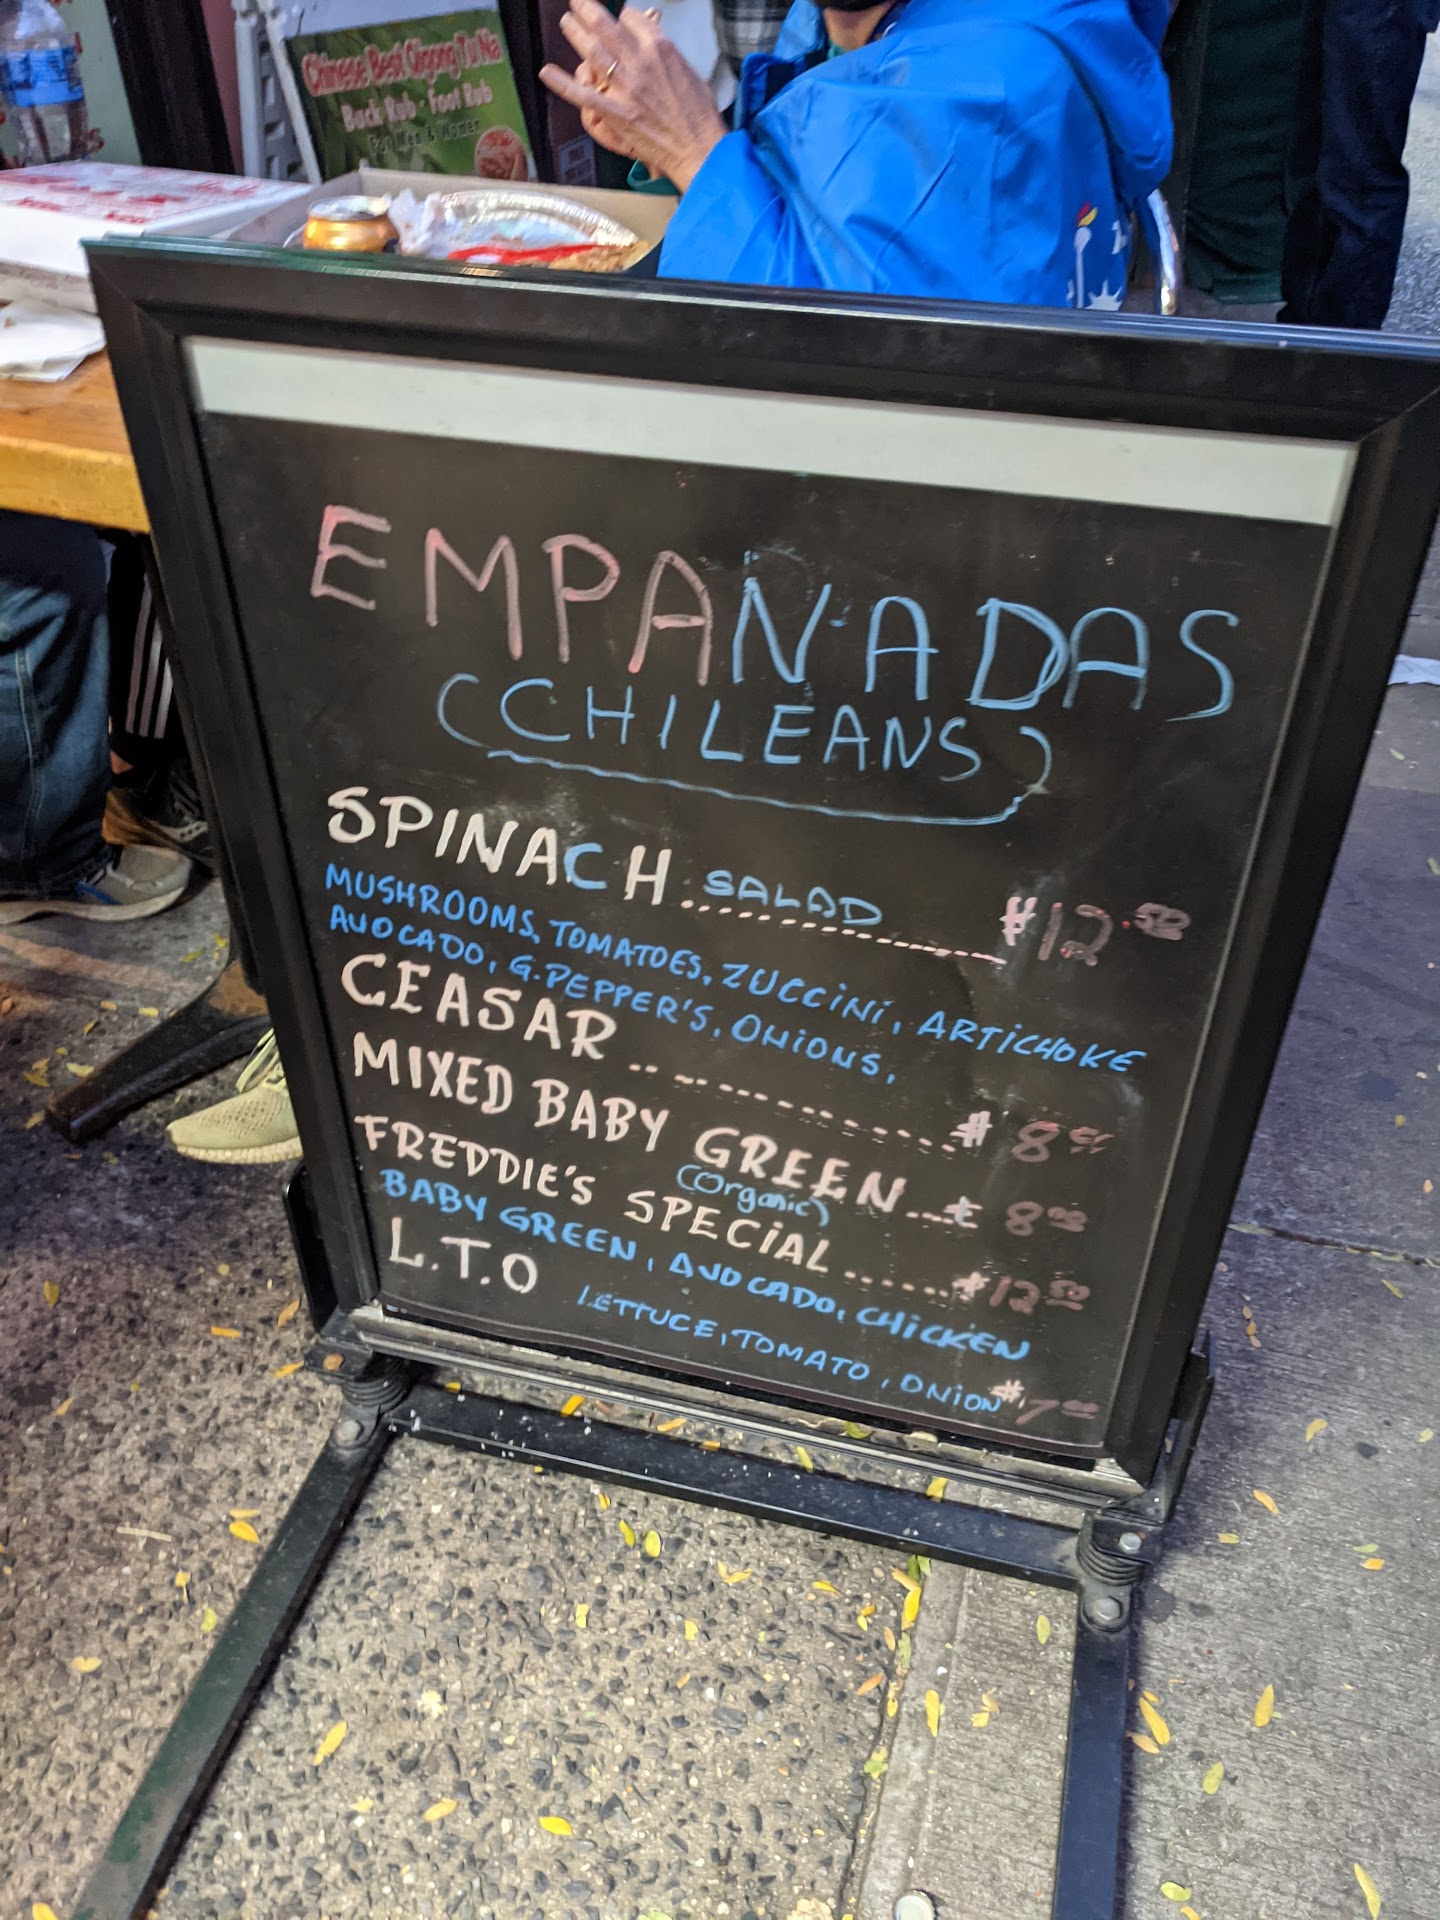 Chinese Best Qigong Tu Na
Back Rub · Foot Rub
For Men & Women
EMPANADAS
(CHILEANS)
SPINACH SALAD $12.50
MUSHROOMS, TOMATOES, ZUCCINI, ARTICHOKE
AVOCADO, G.PEPPER'S, ONIONS,
CEASAR $8
MIXED BABY GREEN $8
(Organic)
FREDDIE'S SPECIAL $12.50
BABY GREEN, AVOCADO, CHICKEN
L.T.O LETTUCE, TOMATO, ONION $7.00